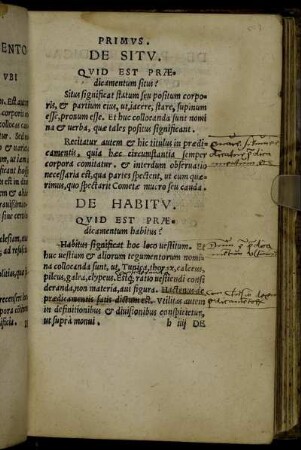 PRIMVS.
DE SITV.
QVID EST PRÆ-
dicamentum situs?
Situs significat statum seu positum corpo-
ris, & partium eius, ut, iacere, stare, supinum
esse, pronum esse. Et huc collocanda sunt nomi
na & uerba, quæ tales positus significant.
Recitatur autem & hic titulus in prædi-
camentis, quia hæc circumstantia semper
corpora comitatur. & interdum obseruatio
necessaria est, qua partes spectent, ut cum quæ-
rimus, quo spectarit Cometæ mucro seu cauda.
DE HABITV.
QVID EST PRÆ-
dicamentum habitus?
Habitus significat hoc loco uestitum. Et
huc uestium & aliorum tegumentorum nomi
na collocanda sunt, ut, Tunica, thorax, calceus,
pileus, galea, clypeus. Estq; ratio uestiendi consi
deranda, non materia, aut figura. Hactenus de
prædicamentis satis dictum est. Vtilitas autem
in definitionibus & diuisionibus conspicietur,
ut suprà monui.
b iiij DE
ENTO
VBI